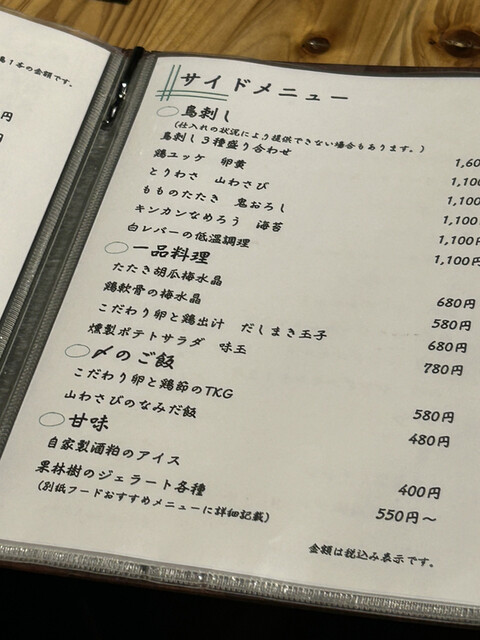 1本の金額です。
円
円
サイドメニュー
鳥刺し
(仕入れの状況により提供できない場合もあります。)
鳥刺し3種盛り合わせ 1,60
鶏ユッケ 卵黄 1,100
とりわさ 山わさび 1,100
もものたたき 鬼おろし 1,100
キンカンなめろう 海苔 1,100円
白レバーの低温調理 1,100円
一品料理
たたき胡瓜梅水晶 680円
鶏軟骨の梅水晶 580円
こだわり卵と鶏出汁 だしまき玉子 680円
燻製ポテトサラダ 味玉 780円
〆のご飯
こだわり卵と鶏節のTKG 580円
山わさびのなみだ飯 480円
甘味
自家製酒粕のアイス 400円
果林樹のジェラート各種 550円～
(別紙フードおすすめメニューに詳細記載)
金額は税込み表示です。